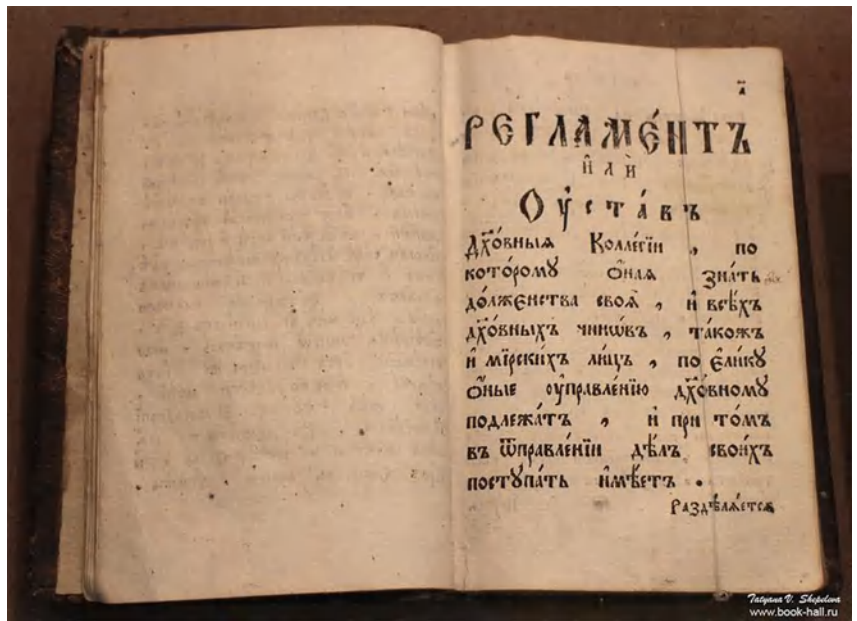 а҃
РЕГЛАМЕ́НТЪ
и҆лѝ
Оу҆ста́въ
Дх҃о́вныѧ Колле́гїи , по
кото́ромꙋ ѻ҆́наѧ зна́ть
до́лженства своѧ̑ , и҆ всѣ́хъ
дх҃о́вныхъ чинѡ́въ , тако́жъ
и҆ мїрски́хъ ли́цъ , по є҆ли́кꙋ
ѻ҆́ные оу҆правле́нїю дх҃о́вномꙋ
подлежа́тъ , и҆ при то́мъ
въ ѿправле́нїи дѣ́лъ свои́хъ
постꙋпа́ть и҆мѣ́етъ .
Раздѣлѧ́етсѧ
Tatyana V. Shepeleva
www.book-hall.ru